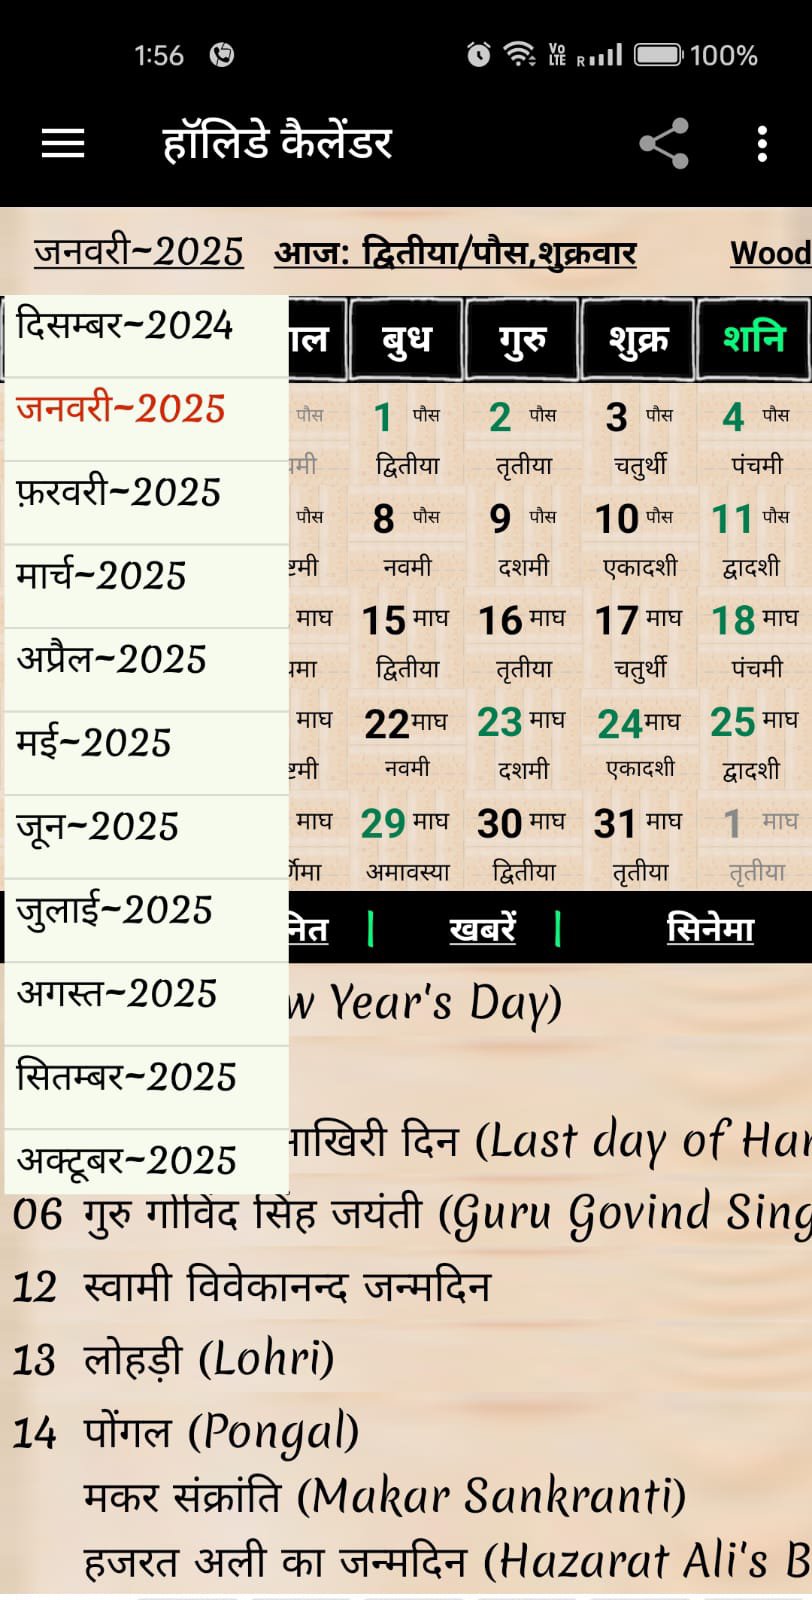 1:56 Vo LTE R 100%
हॉलिडे कैलेंडर
जनवरी~2025 आज: द्वितीया/पौस,शुक्रवार Wood
दिसम्बर~2024
जनवरी~2025
फ़रवरी~2025
मार्च~2025
अप्रैल~2025
मई~2025
जून~2025
जुलाई~2025
अगस्त~2025
सितम्बर~2025
अक्टूबर~2025
बुध गुरु शुक्र शनि
पौस 1 पौस 2 पौस 3 पौस 4 पौस
द्वितीया तृतीया चतुर्थी पंचमी
पौस 8 पौस 9 पौस 10 पौस 11 पौस
नवमी दशमी एकादशी द्वादशी
माघ 15 माघ 16 माघ 17 माघ 18 माघ
द्वितीया तृतीया चतुर्थी पंचमी
माघ 22 माघ 23 माघ 24 माघ 25 माघ
नवमी दशमी एकादशी द्वादशी
माघ 29 माघ 30 माघ 31 माघ 1 माघ
अमावस्या द्वितीया तृतीया तृतीया
| खबरें | सिनेमा
Year's Day)
दिन (Last day of Han
06 गुरु गोविंद सिंह जयंती (Guru Govind Sing
12 स्वामी विवेकानन्द जन्मदिन
13 लोहड़ी (Lohri)
14 पोंगल (Pongal)
मकर संक्रांति (Makar Sankranti)
हजरत अली का जन्मदिन (Hazarat Ali's B